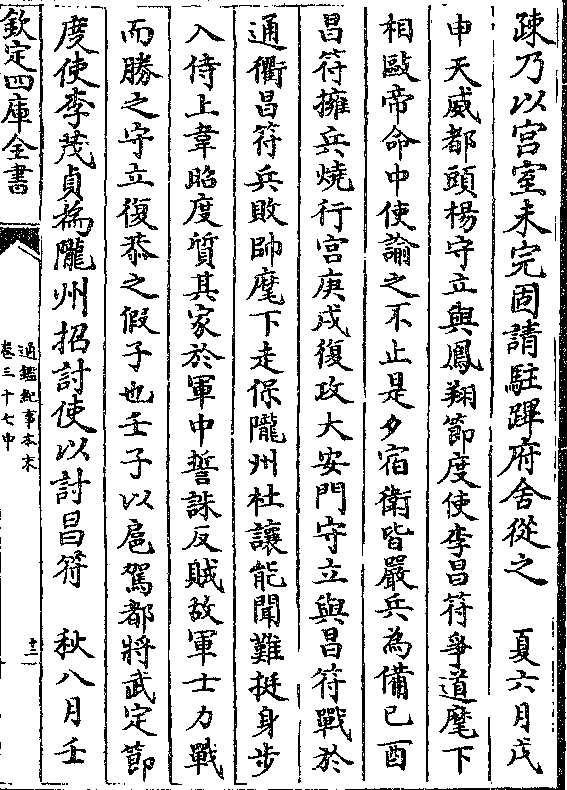 疎乃以宫室未完固請駐蹕府舍從之　夏六月戊
申天威都頭楊守立與鳳翔節度使李昌符爭道麾下
相毆帝命中使諭之不止是夕宿衛皆嚴兵為備己酉
昌符擁兵燒行宫庚戌復攻大安門守立與昌符戰於
通衢昌符兵敗帥麾下走保隴州杜讓能聞難挺身步
入侍上韋昭度質其家於軍中誓誅反賊故軍士力戰
而勝之守立復恭之假子也壬子以扈駕都將武定節
度使李茂貞為隴州招討使以討昌符　秋八月壬
欽定四庫全書
通鑑紀事本末
卷三十七中
十二